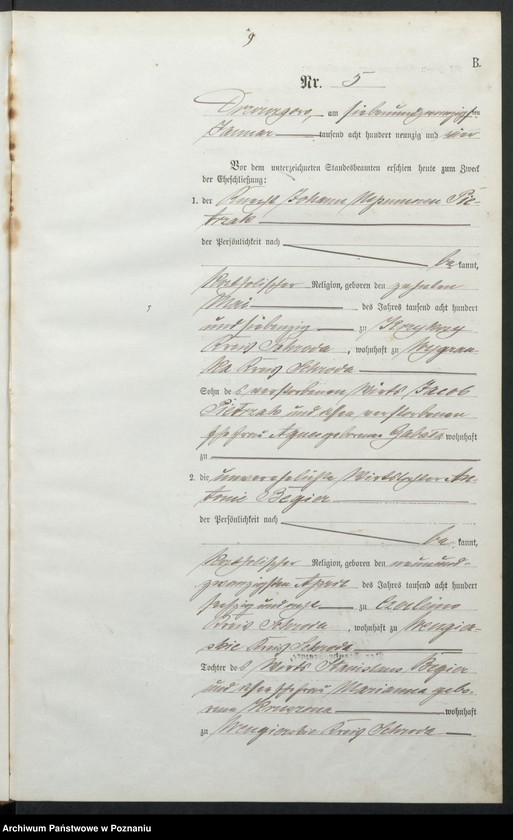 9
B.
Nr. 5
am siebenundzwanzigsten
Januar tausend acht hundert neunzig und vier
Vor dem unterzeichneten Standesbeamten erschien heute zum Zweck
der Eheschließung:
1. der Knecht Johann Nepomucen Pie-
trzak
der Persönlichkeit nach
be kannt,
katholischer Religion, geboren den zehnten
Mai des Jahres tausend acht hundert
und siebenzig zu
Kreis Schroda, wohnhaft zu
Kreis Schroda
Sohn des verstorbenen Wirts Jacob
Pietrzak und dessen verstorbenen
Ehefrau Agnes geborenen wohnhaft
zu
2. die unverehelichte Wirtstochter An-
tonie Begier
der Persönlichkeit nach
be kannt,
katholischer Religion, geboren den neunund-
zwanzigsten April des Jahres tausend acht hundert
sechzig und acht zu
Kreis Schroda, wohnhaft zu Wengier-
skie Kreis Schroda
Tochter des Wirts Stanislaus Begier
und dessen Ehefrau Marianna gebo-
rene wohnhaft
zu Wengierskie Kreis Schroda
Archiwum Państwowe w Poznaniu